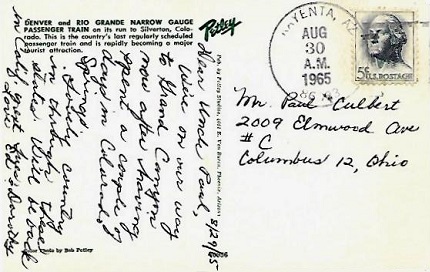 DENVER and RIO GRANDE NARROW GAUGE
PASSENGER TRAIN on its run to Silverton, Colo-
rado. This is the country's last regularly scheduled
passenger train and is rapidly becoming a major
tourist attraction.
Petley
Pub. by Petley Studios, Phoenix, Arizona
8/29/65
Dear Uncle Paul,
We're on our way
to Grand Canyon
now after having
spent a couple of
days in Colorado
Springs
Lovely country
in through these
states. Will be back
Love Ed & Dorothy
Color Photo by Bob Petley
YENTA, AZ
AUG
30
A.M.
1965
5¢
U.S. POSTAGE
Mr. Paul Culbert
2009 Elmwood Ave
#C
Columbus 12, Ohio